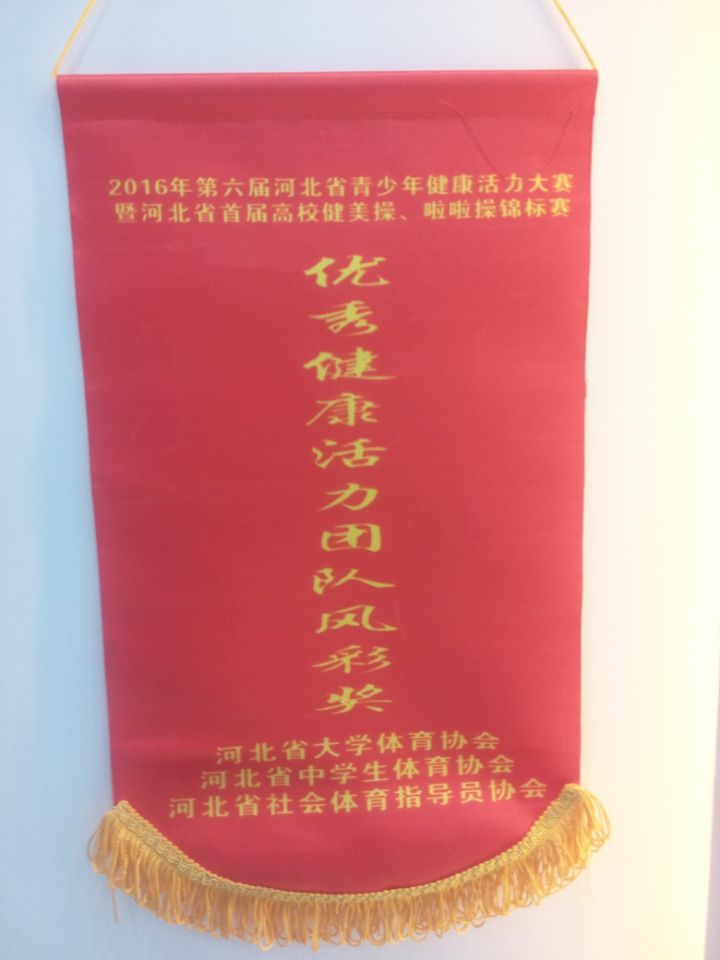 2016年第六届河北省青少年健康活力大赛
暨河北省首届高校健美操、啦啦操锦标赛
优秀健康活力团队风彩奖
河北省大学体育协会
河北省中学生体育协会
河北省社会体育指导员协会